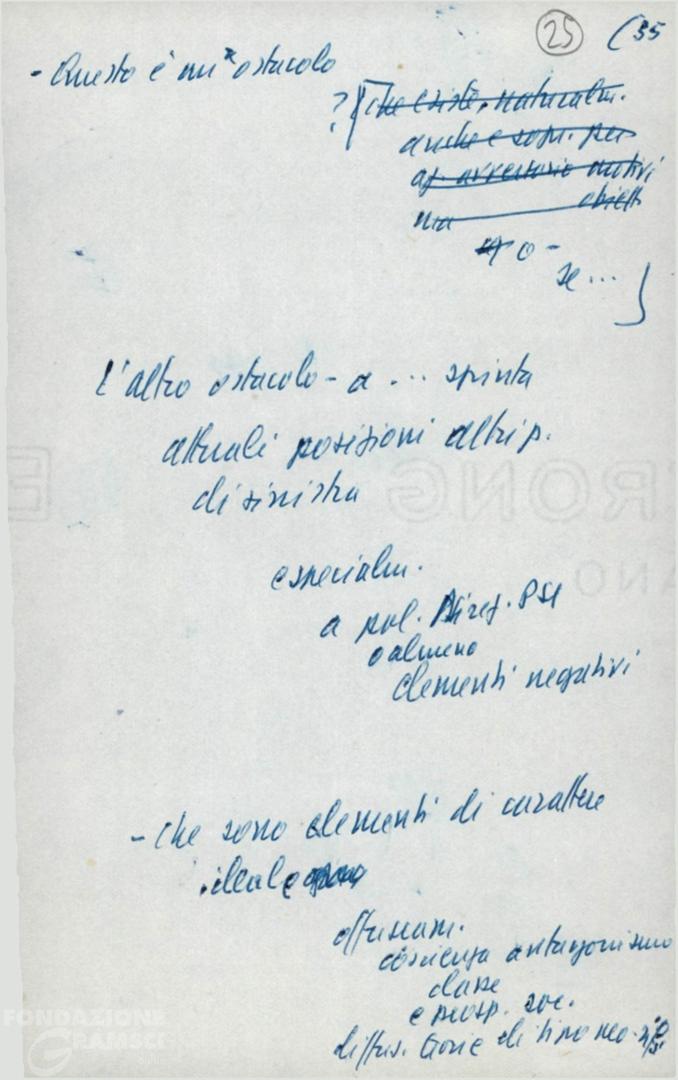 25 (35
- Questo è un ostacolo
? [che esiste, naturalm.
anche e sopr. per
motivi
ma obietti
o -
se... ]
L'altro ostacolo - a ... spinta
attuali posizioni altri p.
di sinistra
especialm.
a pol. Direz. PSI
o almeno
elementi negativi
- Che sono elementi di carattere
ideale
offuscam.
coscienza antagonismo
classe
e prosp. soc.
diffus. teorie di tipo neo-
FONDAZIONE
GRAMSCI